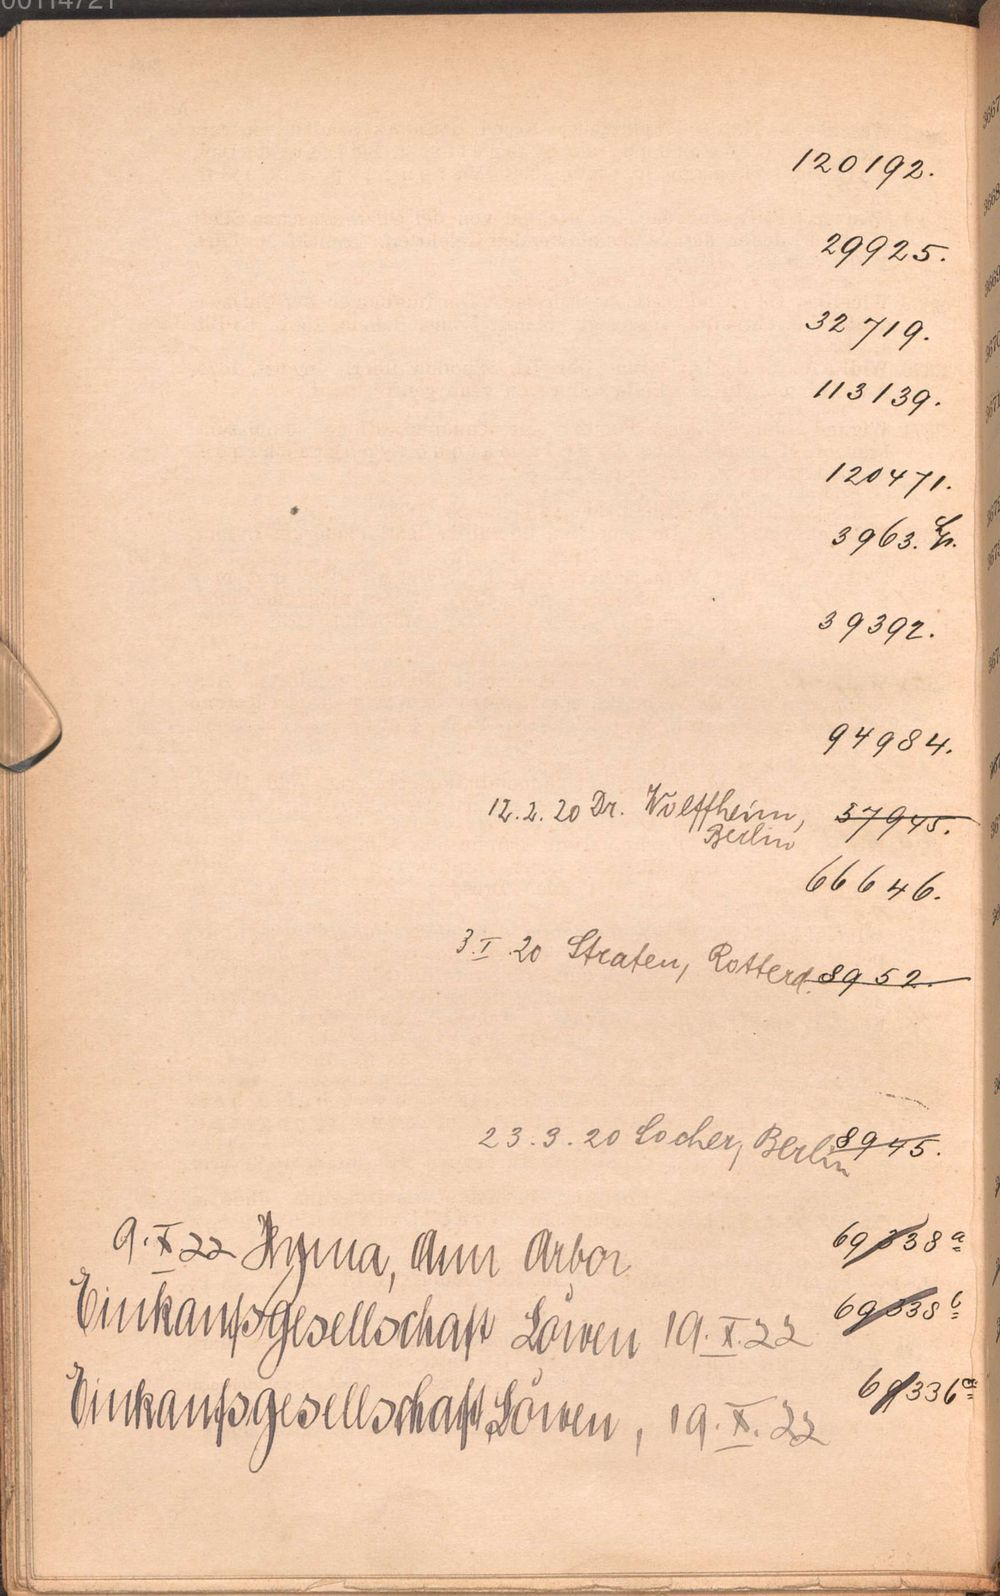 00114721
120192.
29925.
32719.
113139.
120471.
3963.
39392.
94984.
12.2.20 Dr. Wolffheim, 37945.
Berlin
66646.
3.I.20 Straten, Rotterd. 8952.
23.3.20 Locher, Berlin 8945.
9.X 22 Hyma, Ann Arbor 69338a
Einkaufsgesellschaft Löwen 19.X.22 69338b
Einkaufsgesellschaft Löwen, 19.X.22 69336a